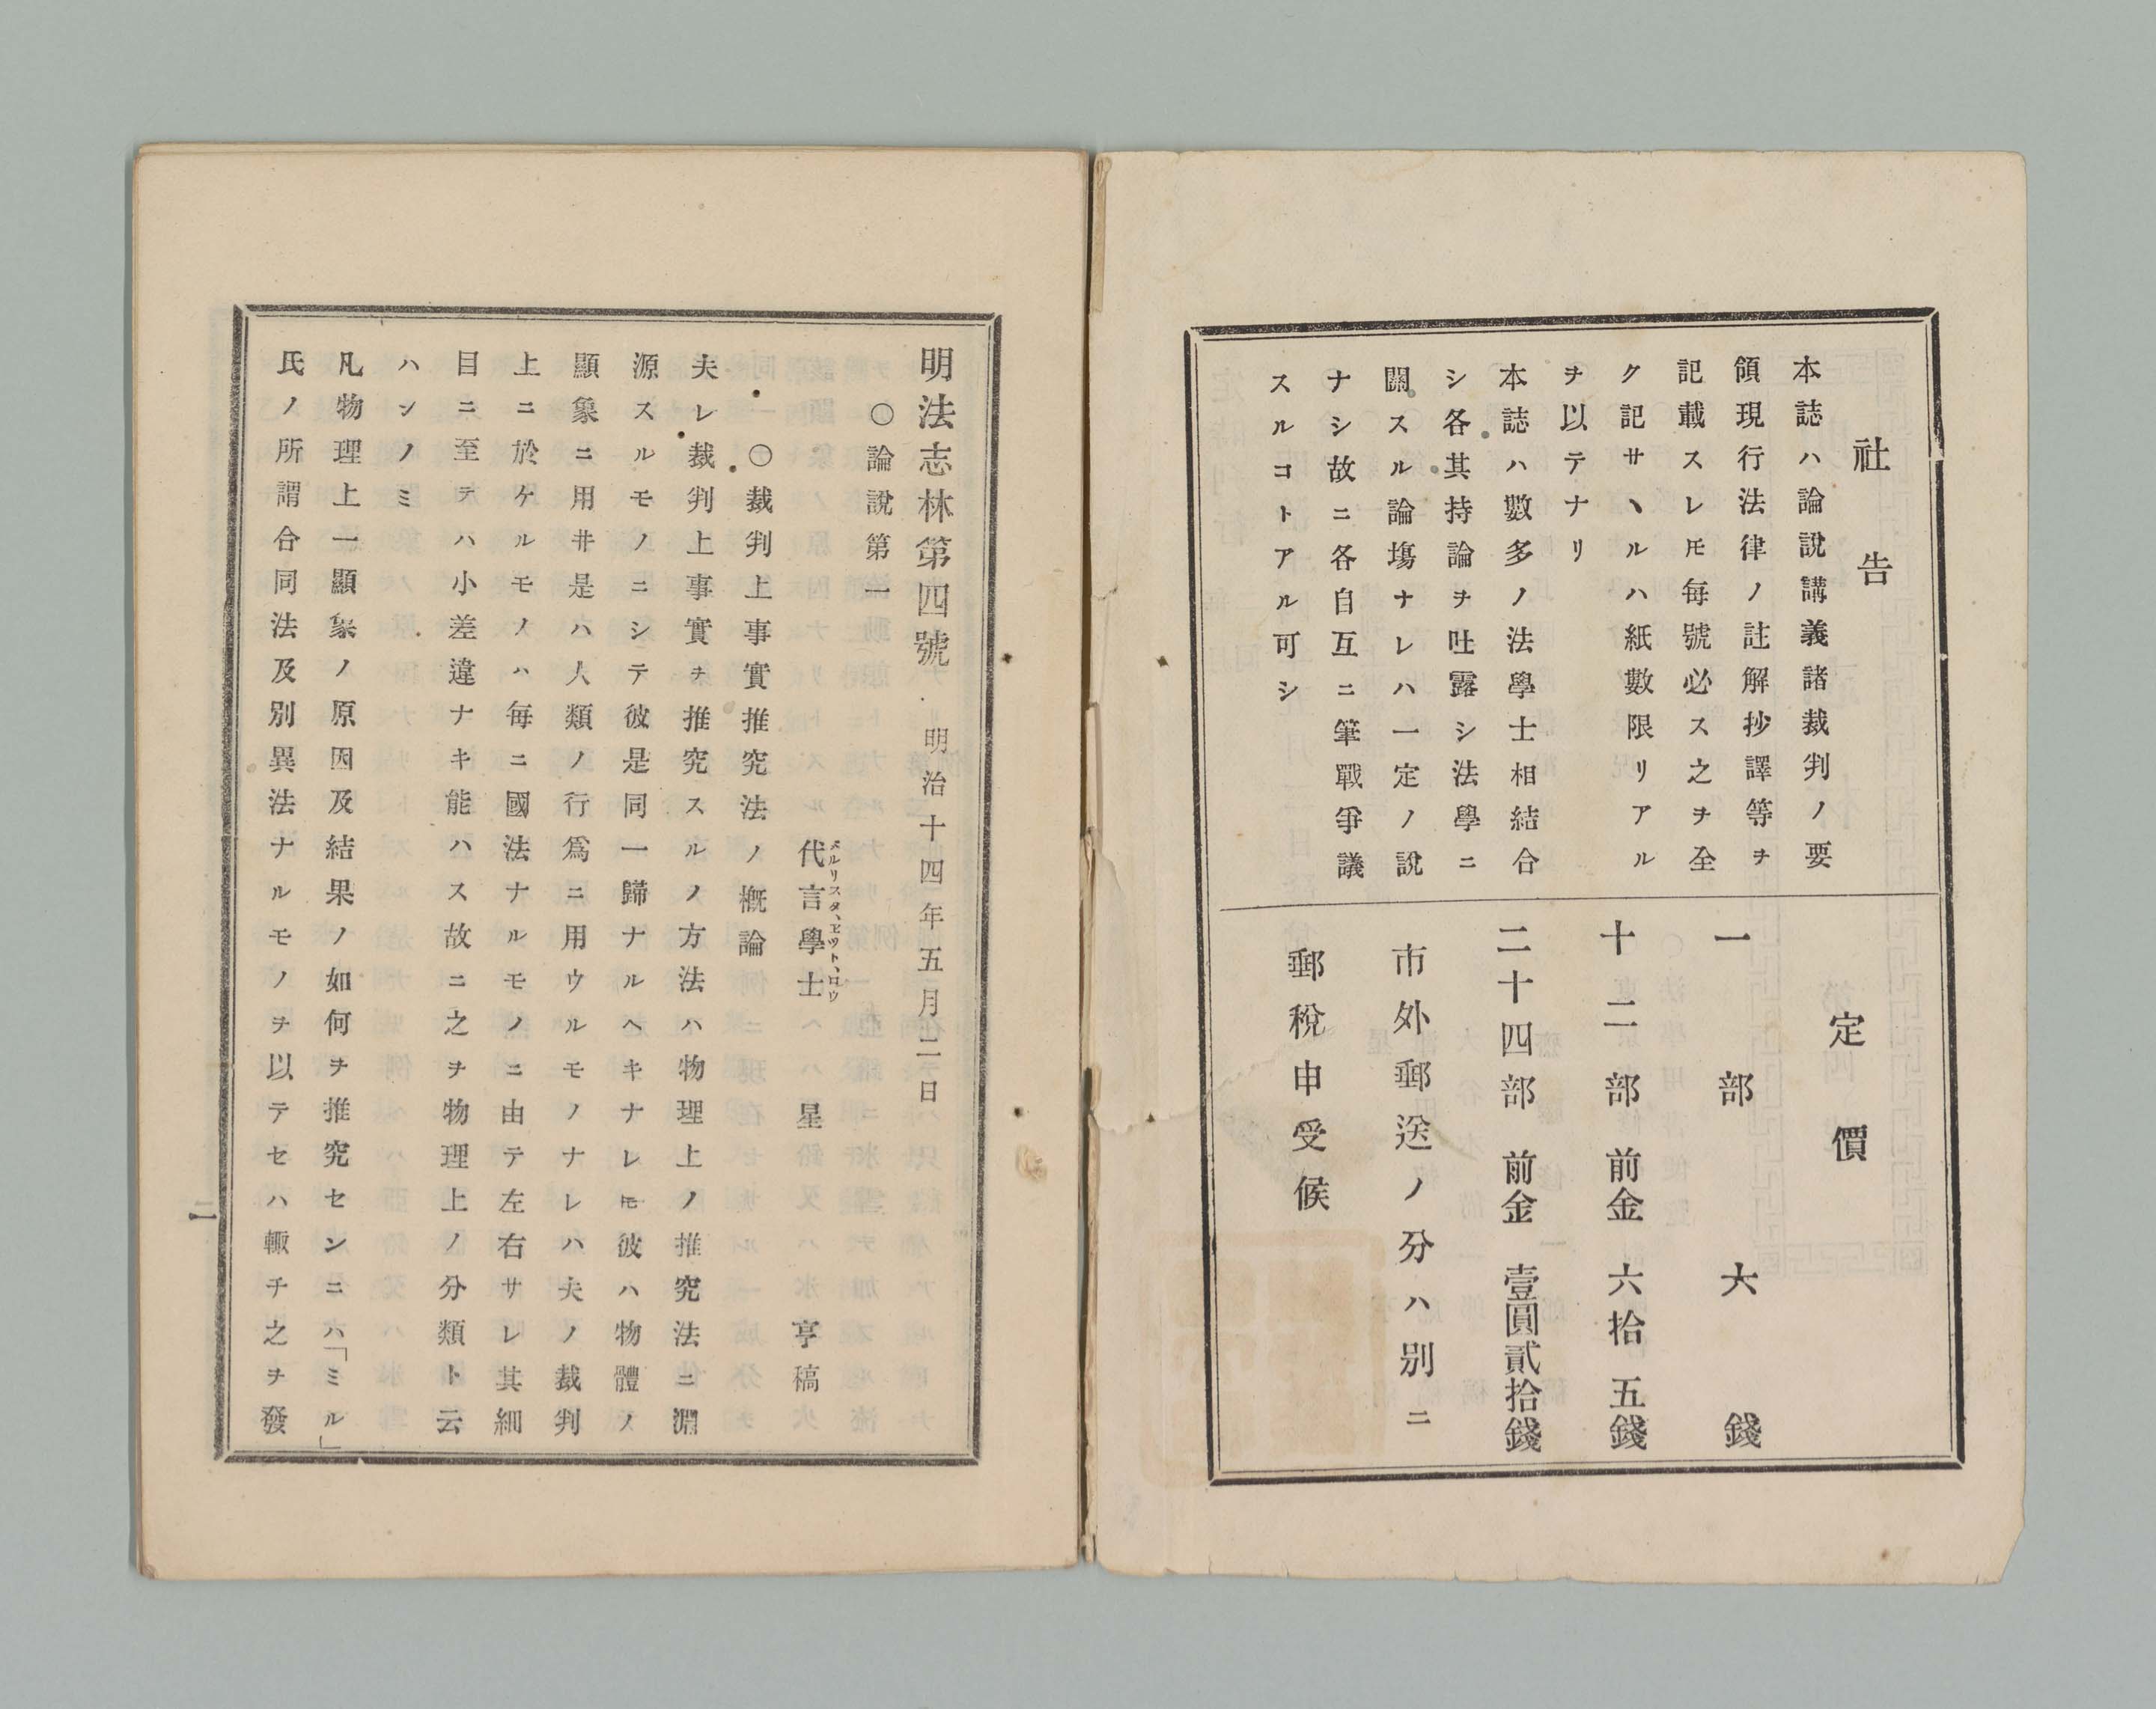 社告
本誌ハ論説講義諸裁判ノ要
領現行法律ノ註解抄譯等ヲ
記載スレ𪜈毎號必ス之ヲ全
ク記サヽルハ紙數限リアル
ヲ以テナリ
本誌ハ數多ノ法學士相結合
シ各其持論ヲ吐露シ法學ニ
關スル論塲ナレハ一定ノ說
ナシ故ニ各自互ニ筆戰爭議
スルコトアル可シ
定價
一部 六錢
十二部 前金 六拾五錢
二十四部 前金 壹圓貳拾錢
市外郵送ノ分ハ別ニ
郵稅申受候
明法志林第四號 明治十四年五月二日
○論說第一
○裁判上事實推究法ノ概論
代言學士 星亨稿
夫レ裁判上事實ヲ推究スルノ方法ハ物理上ノ推究法ニ淵
源スルモノニシテ彼是同一歸ナルヘキナレ𪜈彼ハ物體ノ
顯象ニ用井是ハ人類ノ行爲ニ用ウルモノナレハ夫ノ裁判
上ニ於ケルモノハ毎ニ國法ナルモノニ由テ左右サレ其細
目ニ至テハ小差違ナキ能ハス故ニ之ヲ物理上ノ分類ト云
ハンノミ
凡物理上一顯象ノ原因及結果ノ如何ヲ推究センニハ「ミル」
氏ノ所謂合同法及別異法ナルモノヲ以テセハ輙チ之ヲ發